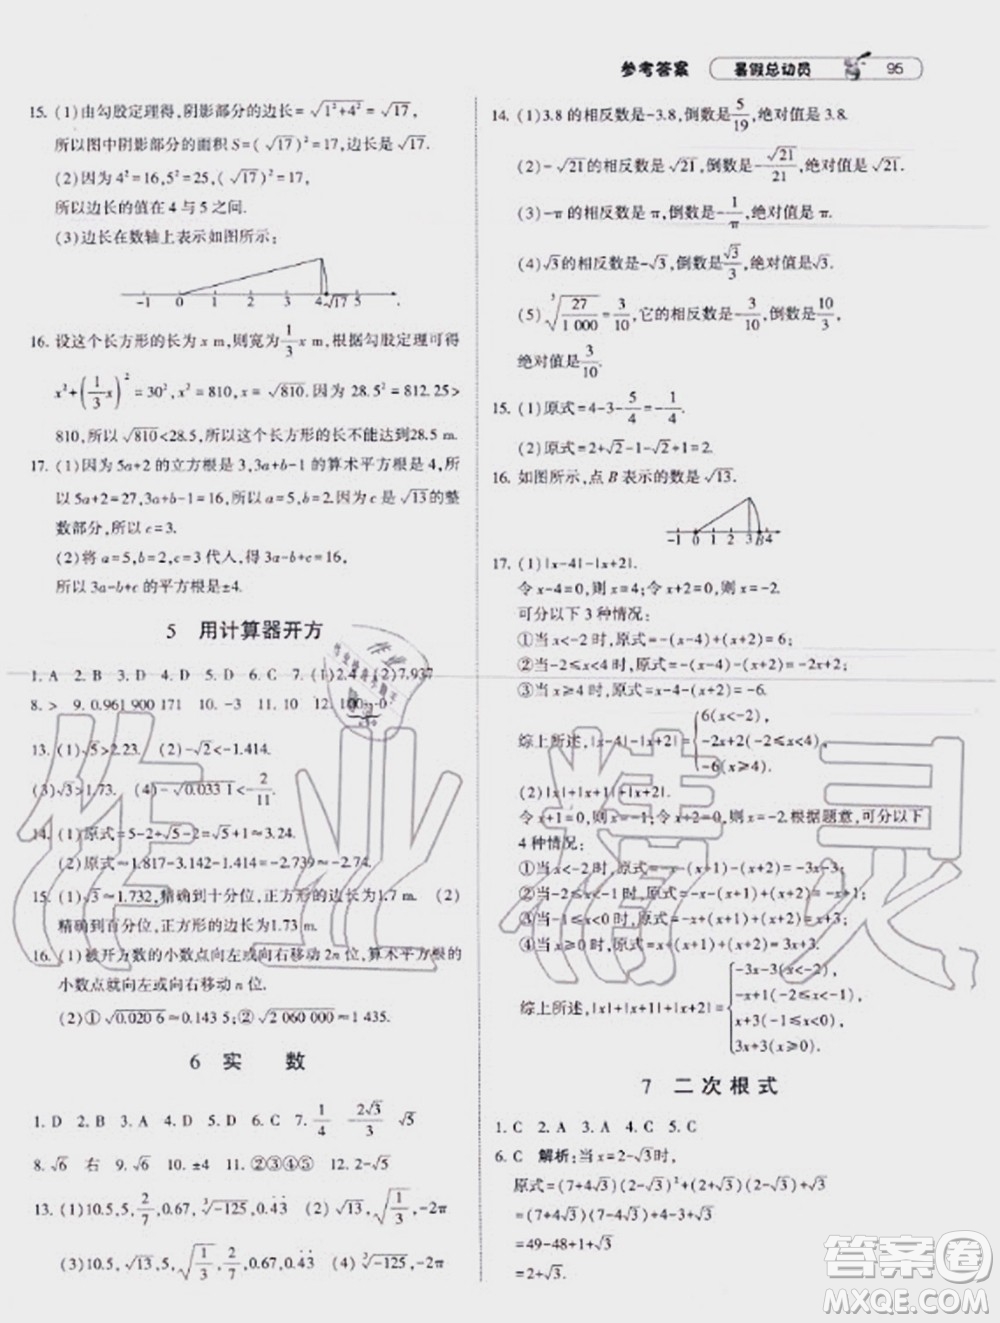 参考答案 暑假总动员 95
15. (1)由勾股定理得,阴影部分的边长=√(1²+4²)=√17,
所以图中阴影部分的面积 S=(√17)²=17.
(2)因为4²=16,5²=25,(√17)²=17,
所以边长的值在4与5之间.
(3)边长在数轴上表示如图所示:
-1 0 1 2 3 4 √17 5
16. 设这个长方形的长为 x m,则宽为1/3 x m,根据勾股定理可得
x²+(1/3 x)²=30²,x²=810,x=√810.因为28.5²=812.25>
810,所以√810<28.5,所以这个长方形的长不能达到28.5 m.
17. (1)因为5a+2的立方根是3,3a+b-1的算术平方根是4,所
以5a+2=27,3a+b-1=16,所以a=5,b=2.因为c是√13的整
数部分,所以c=3.
(2)将a=5,b=2,c=3代入,得3a-b+c=16.
所以3a-b+c的平方根是±4.
5 用计算器开方
1. A 2. D 3. A 4. C 5. B 6. A 7. (1)2.4 (2)7.937
8. > 9. 0.961 900 171 10. -3 11. 10 12. 100
13. (1)√5>2.23. (2)-√2<-1.414.
(3)√3>1.73. (4)-√0.033 1<-2/11.
14. (1)原式=5-2+√5-2=√5+1≈3.24.
(2)原式≈1.817-3.142-1.414=-2.739≈-2.74.
15. (1)√3≈1.732,精确到十分位,正方形的边长为1.7 m. (2)
精确到百分位,正方形的边长为1.73 m.
16. (1)被开方数的小数点向左或向右移动2n位,算术平方根
的小数点就向左或向右移动n位.
(2)①√0.020 6≈0.143 5;②√2 060 000≈1 435.
6 实 数
1. D 2. B 3. A 4. D 5. D 6. B 7. 1/4 2√3/3 √5
8. √6 右 9. √6 10. ±√7 11. ②③④⑤ 12. 2-√3
13. (1)10.5,5,2/7,0.67,∛-125,0.4̇3̇ (2)√13,√(1/3),-2π
(3)10.5,5,√13,√(1/3),2/7,0.67,0.4̇3̇ (4)∛-125,-2π
14. (1)3.8的相反数是-3.8,倒数是5/19,绝对值是3.8.
(2)-√21的相反数是√21,倒数是-√21/21,绝对值是√21.
(3)-π的相反数是π,倒数是-1/π,绝对值是π.
(4)√3的相反数是-√3,倒数是√3/3,绝对值是√3.
(5)∛(27/1 000)=3/10,它的相反数是-3/10,倒数是10/3,
绝对值是3/10.
15. (1)原式=4-3-5/4=-1/4.
(2)原式=2+√2-1-√2=1.
16. 如图所示,点B表示的数是√13.
-1 0 1 2 3 B 4
17. (1)|x-4|-|x+2|.
令x-4=0,则x=4;令x+2=0,则x=-2.
可分以下3种情况:
①当x<-2时,原式=4-x+x+2=6;
②当-2≤x<4时,原式=4-x-x-2=-2x+2;
③当x≥4时,原式=x-4-x-2=-6.
综上所述,|x-4|-|x+2|={6(x<-2),
-2x+2(-2≤x<4),
-6(x≥4).
(2)|x|+|x+1|+|x+2|.
令x+1=0,则x=-1;令x+2=0,则x=-2.根据题意,可分以下
4种情况:
①当x<-2时,原式=-x-(x+1)-(x+2)=-3x-3;
②当-2≤x<-1时,原式=-x-(x+1)+(x+2)=-x+1;
③当-1≤x<0时,原式=-x+(x+1)+(x+2)=x+3;
④当x≥0时,原式=x+(x+1)+(x+2)=3x+3.
综上所述,|x|+|x+1|+|x+2|={-3x-3(x<-2),
-x+1(-2≤x<-1),
x+3(-1≤x<0),
3x+3(x≥0).
7 二次根式
1. C 2. A 3. A 4. C 5. C
6. C 解析:当x=2-√3时,
原式=(7+4√3)(2-√3)²+(2+√3)(2-√3)+√3
=(7+4√3)(7-4√3)+4-3+√3
=49-48+1+√3
=2+√3.
作业精灵
答案圈
MXQE.COM